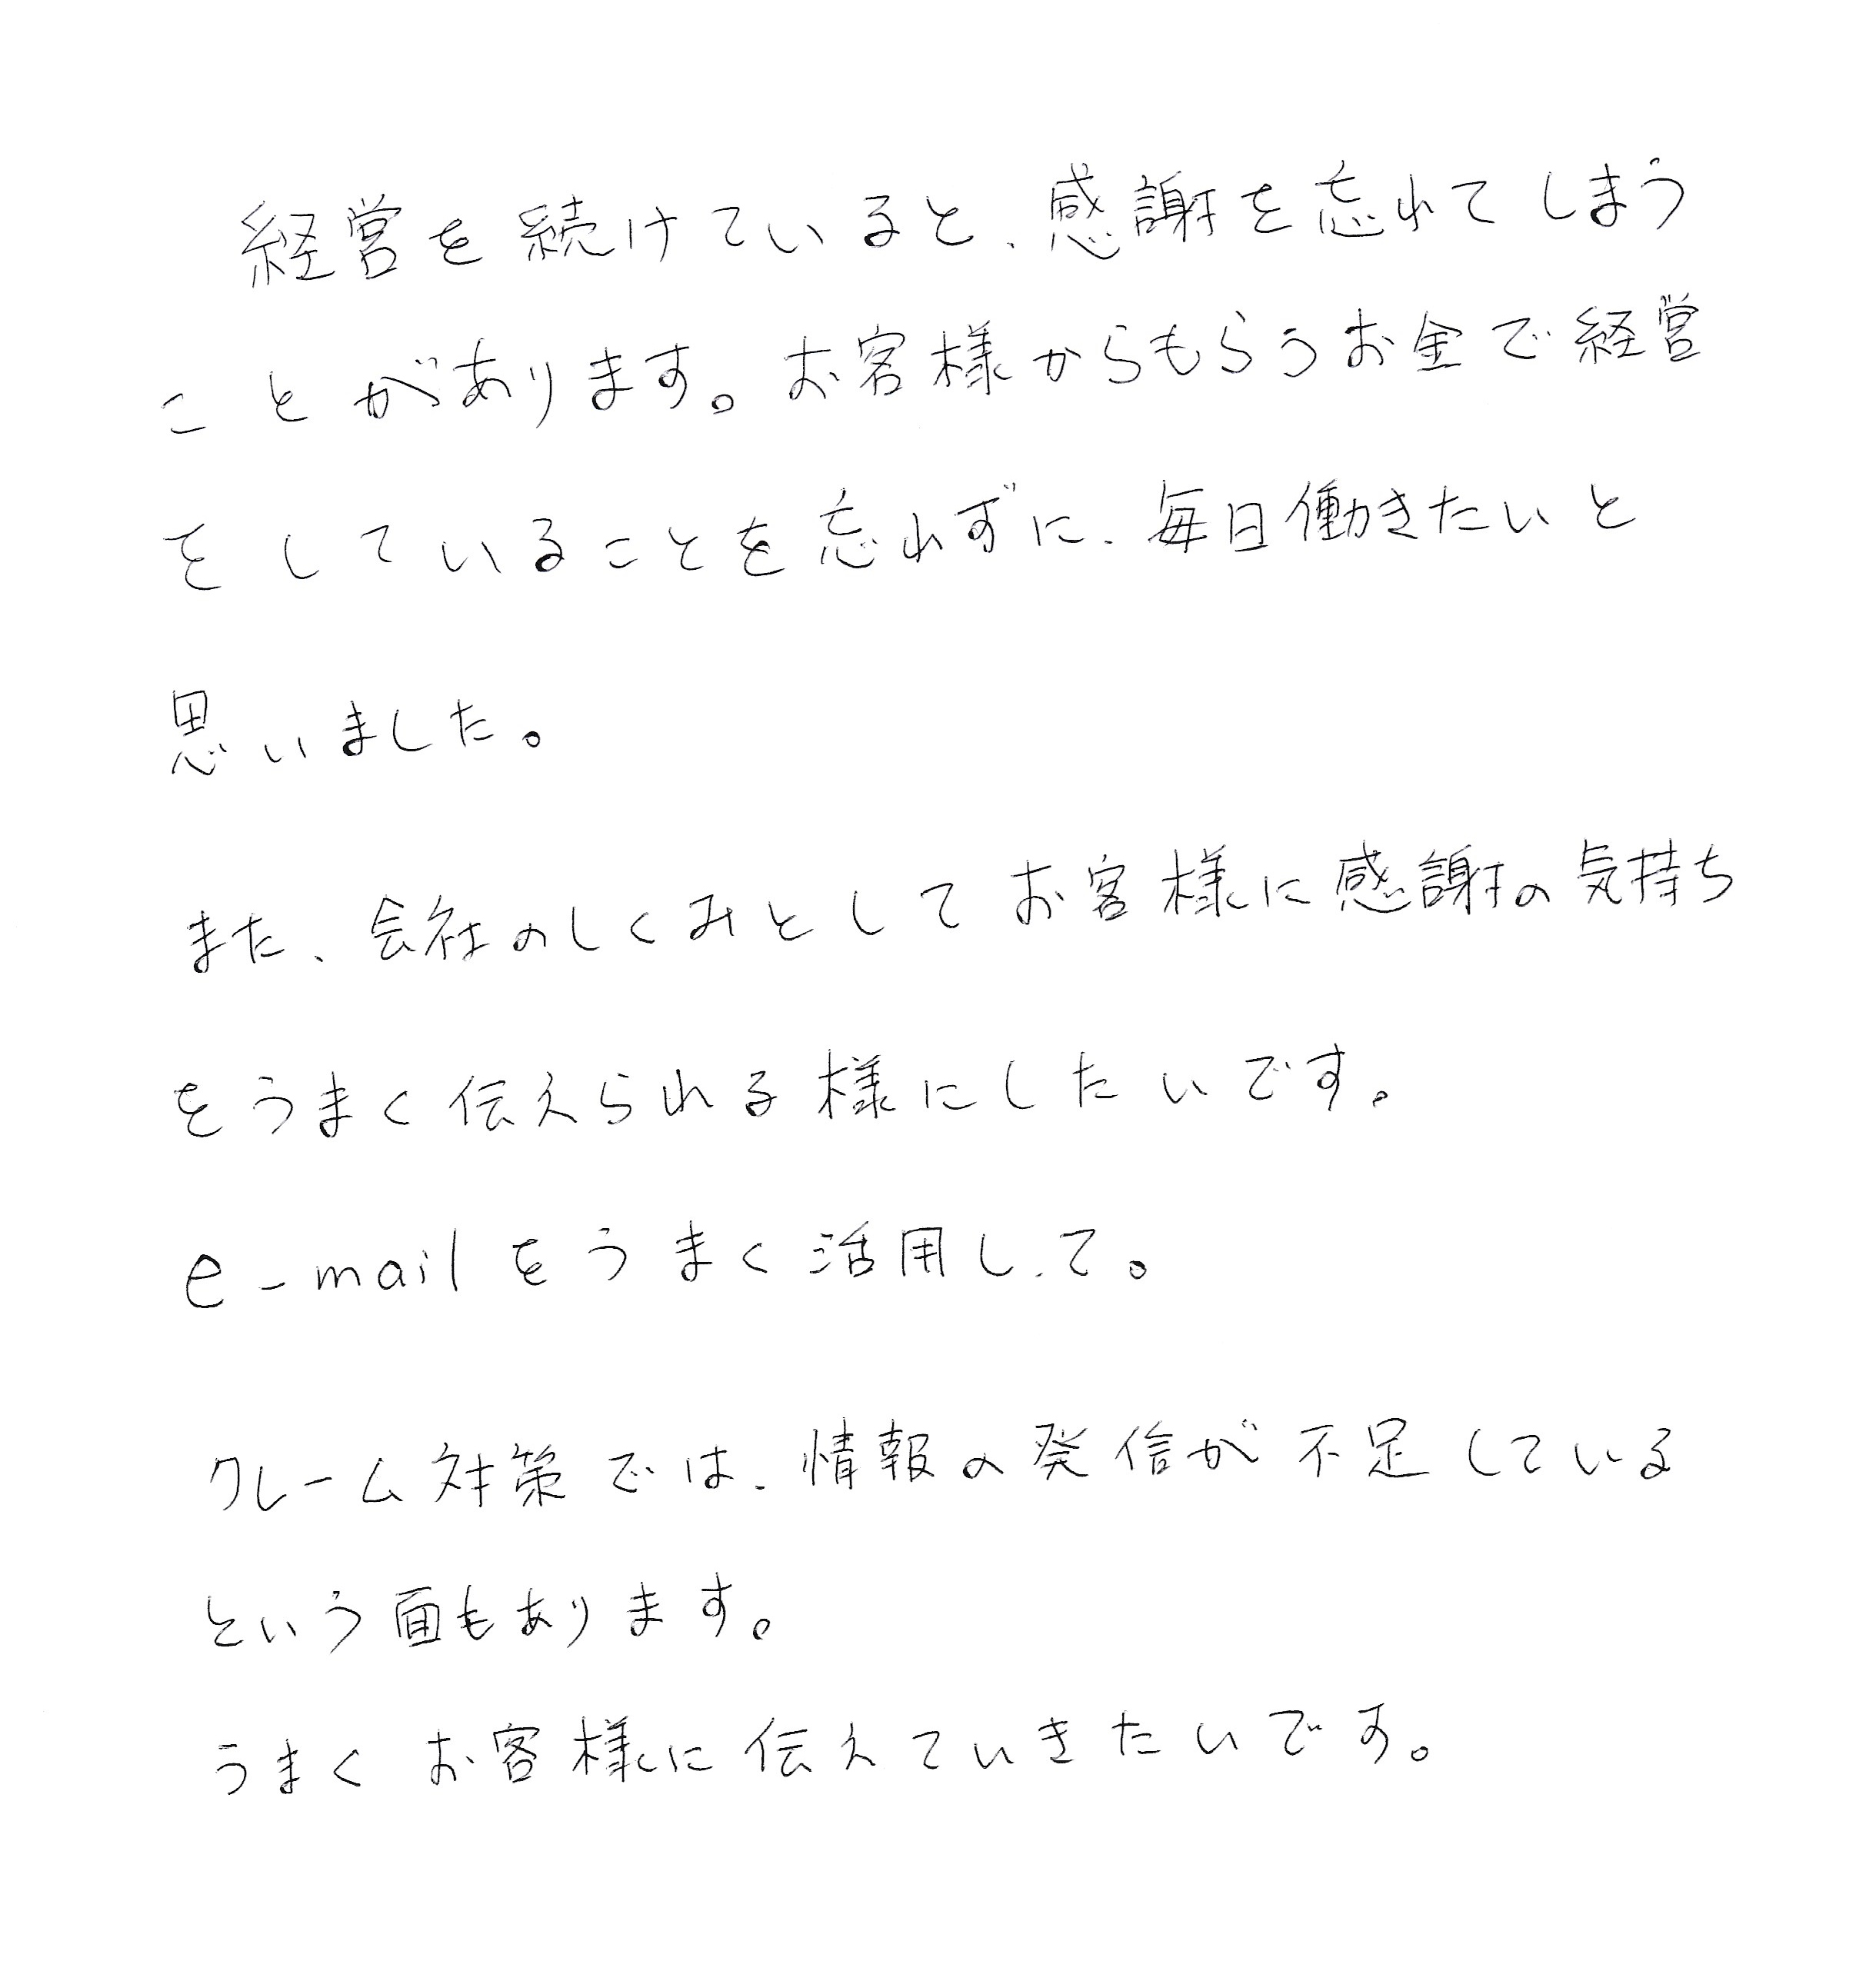 経営を続けていると、感謝を忘れてしまう
ことがあります。お客様からもらうお金で経営
をしていることを忘れずに、毎日働きたいと
思いました。
また、会社のしくみとしてお客様に感謝の気持ち
をうまく伝えられる様にしたいです。
e-mailをうまく活用して。
クレーム対策では、情報の発信が不足している
という面もあります。
うまくお客様に伝えていきたいです。